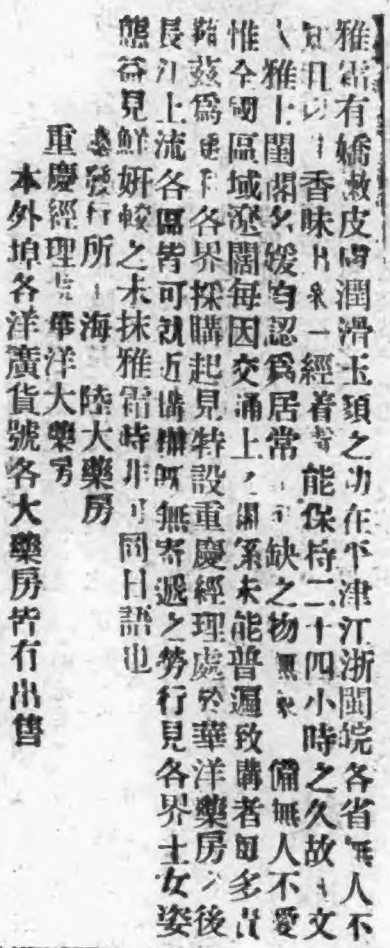 雅霜有嬌嫩皮膚潤滑玉顏之功在平津江浙閩皖各省無人不
知且以香味一經着能保持二十四小時之久故文
人雅士閨閣名媛均認爲居常可缺之物無備無人不愛
惟全國區域遼闊每因交通上之關系未能普遍致購者每多責
難茲爲便利各界採購起見特設重慶經理處於華洋藥房之後
長江上流各區皆可就近購辦既無寄遞之勞行見各界士女姿
態益見鮮妍較之未抹雅霜時非可同日語也
總發行所海陸大藥房
重慶經理處華洋大藥房
本外埠各洋廣貨號各大藥房皆有出售